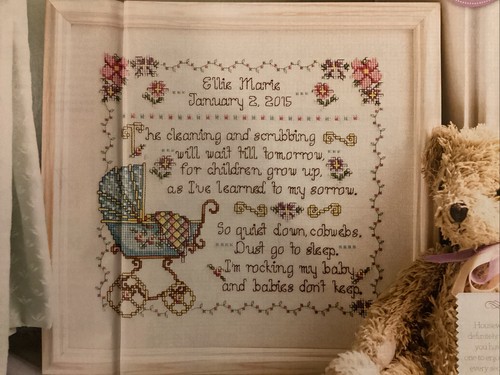 Ellie Marie
January 2, 2015
The cleaning and scrubbing
will wait till tomorrow,
for children grow up,
as I've learned to my sorrow.
So quiet down, cobwebs.
Dust go to sleep.
I'm rocking my baby
and babies don't keep.
you